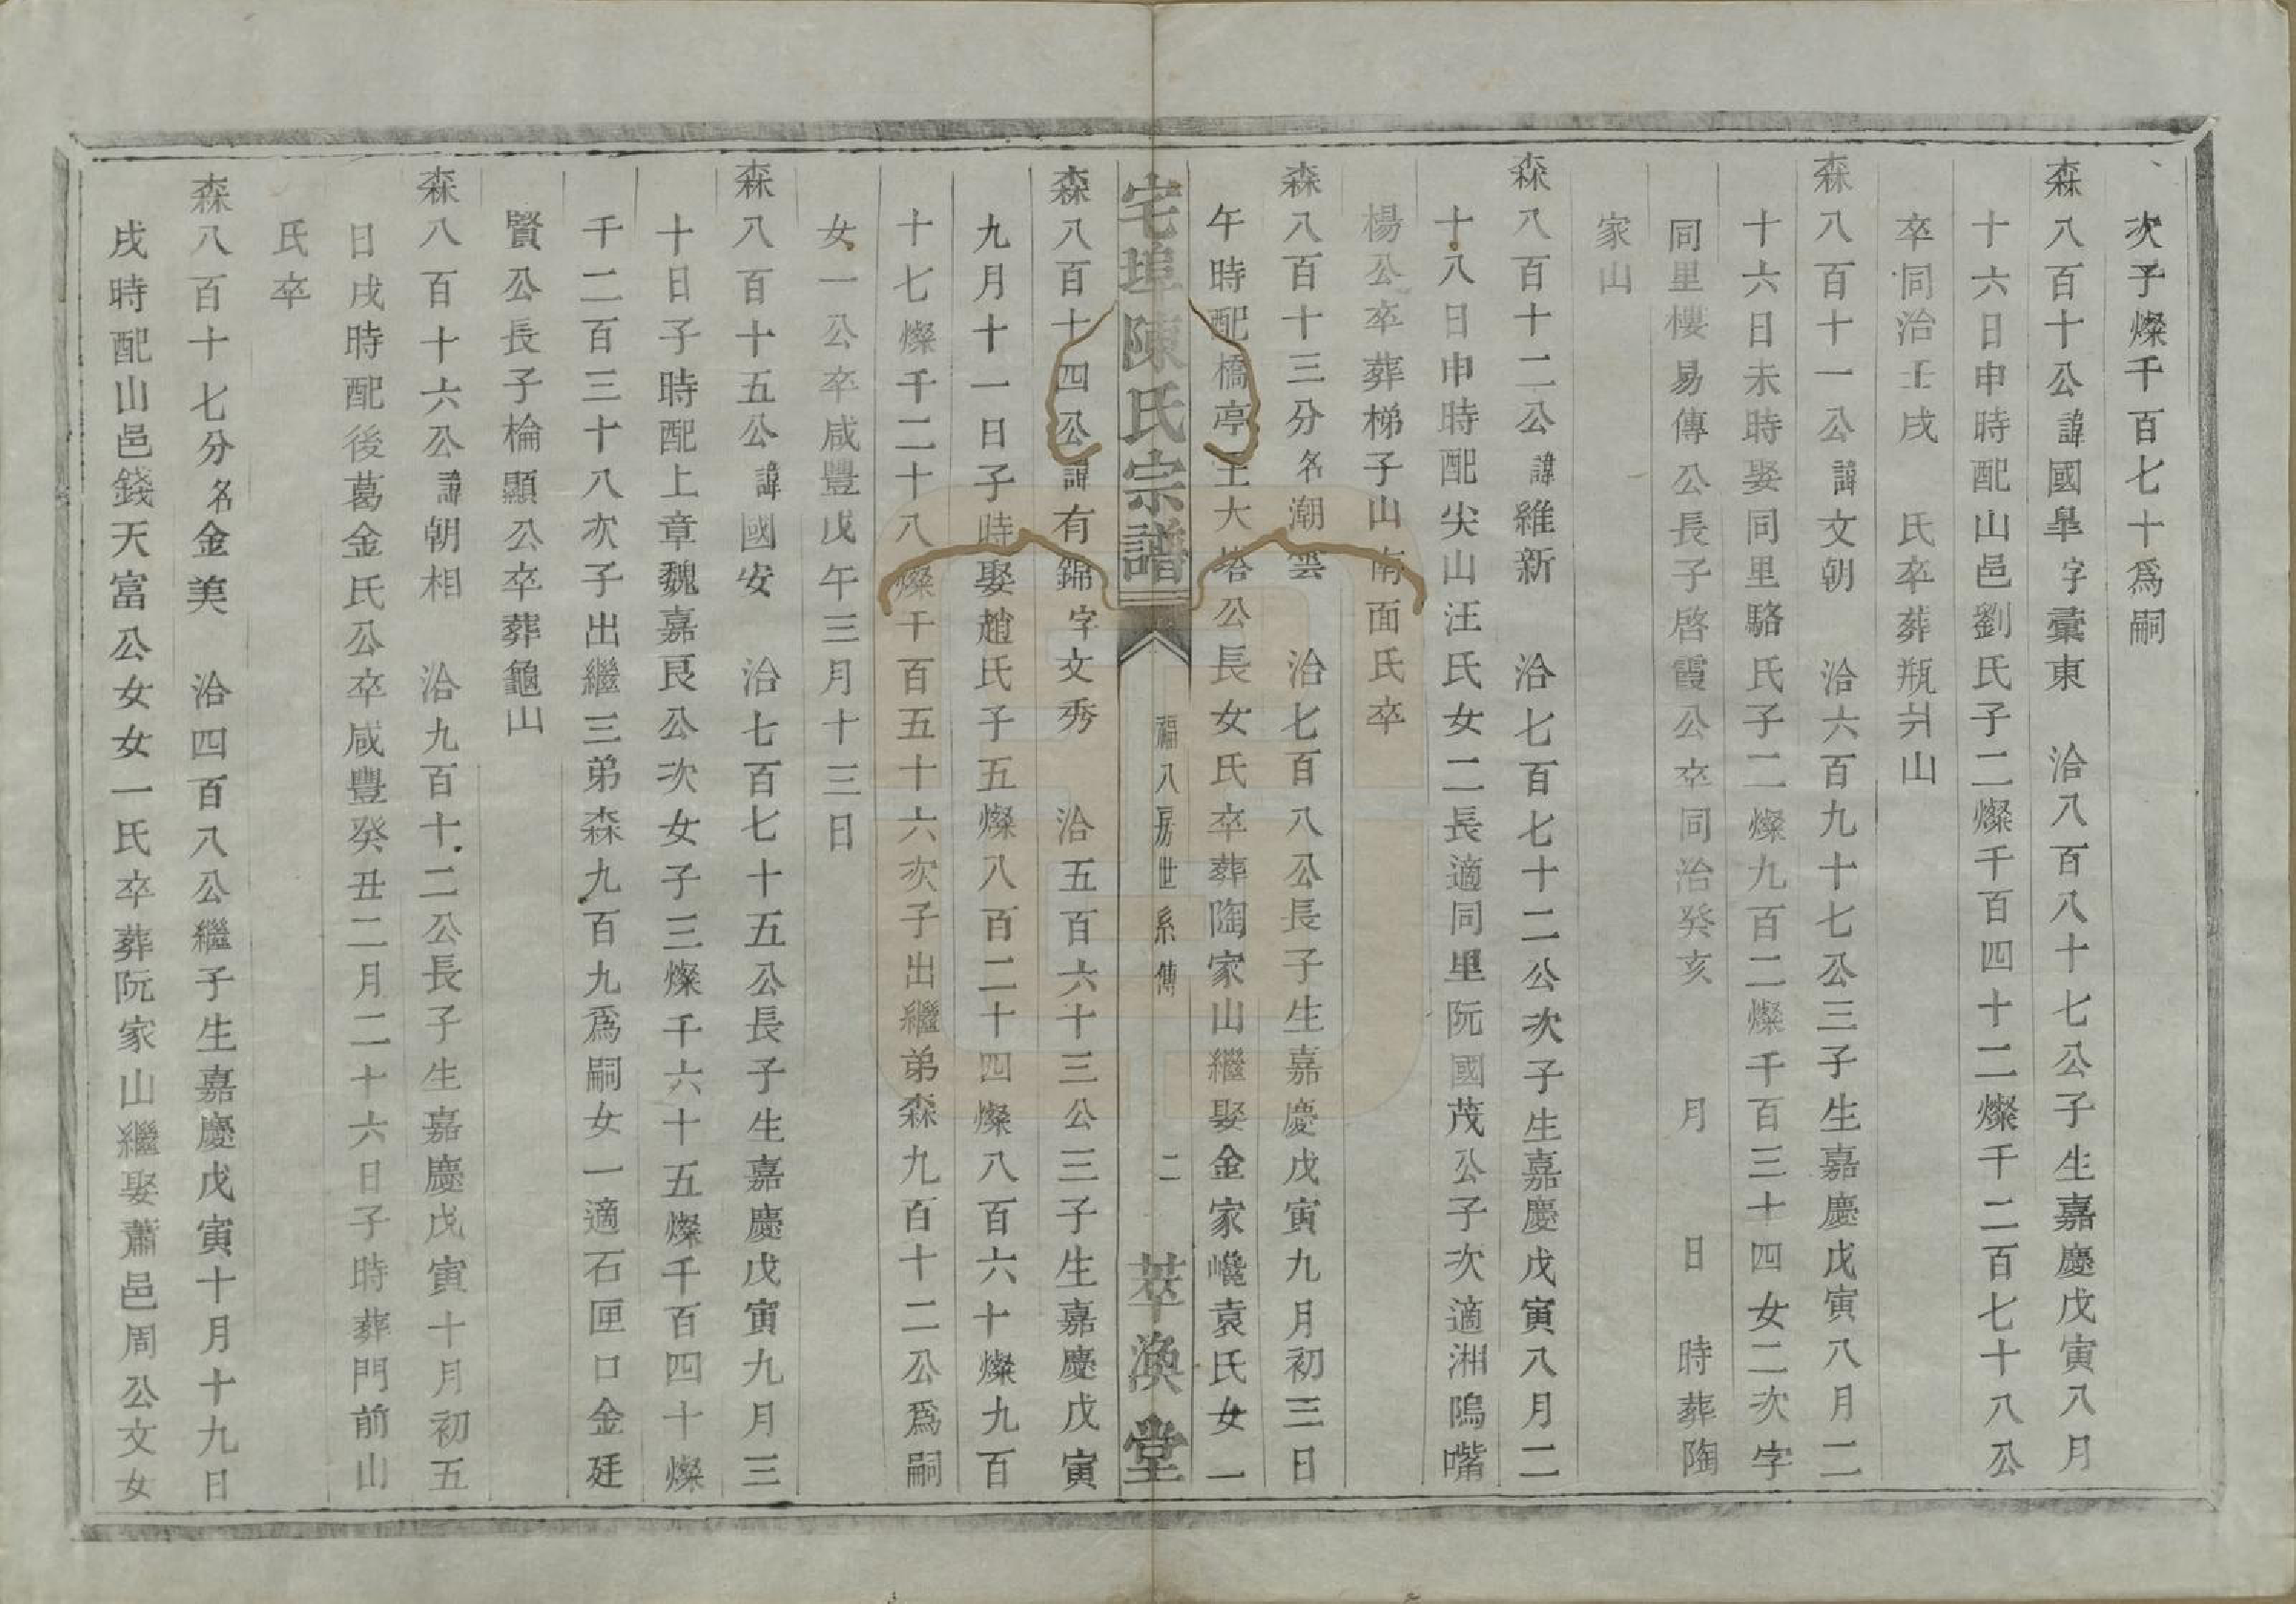 次子燦千百七十為嗣
森八百十公諱國臯字彙東　洽八百八十七公子生嘉慶戊寅八月
十六日申時配山邑劉氏子二燦千百四十二燦千二百七十八公
卒同治壬戌　氏卒葬瓶爿山
森八百十一公諱文朝　洽六百九十七公三子生嘉慶戊寅八月二
十六日未時娶同里駱氏子二燦九百二燦千百三十四女二次字
同里樓易傳公長子啓霞公卒同治癸亥　月　日　時葬陶
家山
森八百十二公諱維新　洽七百七十二公次子生嘉慶戊寅八月二
十八日申時配尖山汪氏女二長適同里阮國茂公子次適湘隝嘴
楊公卒葬梯子山南面氏卒
森八百十三分名潮雲　洽七百八公長子生嘉慶戊寅九月初三日
午時配橋亭王大塔公長女氏卒葬陶家山繼娶金家嶬袁氏女一
宅埠陳氏宗譜　福八房世系傳　二　萃渙堂
森八百十四公諱有錦字文秀　洽五百六十三公三子生嘉慶戊寅
九月十一日子時娶趙氏子五燦八百二十四燦八百六十燦九百
十七燦千二十八燦千百五十六次子出繼弟森九百十二公為嗣
女一公卒咸豐戊午三月十三日
森八百十五公諱國安　洽七百七十五公長子生嘉慶戊寅九月三
十日子時配上章魏嘉艮公次女子三燦千六十五燦千百四十燦
千二百三十八次子出繼三弟森九百九為嗣女一適石匣口金廷
賢公長子棆顯公卒葬龜山
森八百十六公諱朝相　洽九百十二公長子生嘉慶戊寅十月初五
日戌時配後葛金氏公卒咸豐癸丑二月二十六日子時葬門前山
氏卒
森八百十七分名金美　洽四百八公繼子生嘉慶戊寅十月十九日
戌時配山邑錢天富公女女一氏卒葬阮家山繼娶蕭邑周公文女